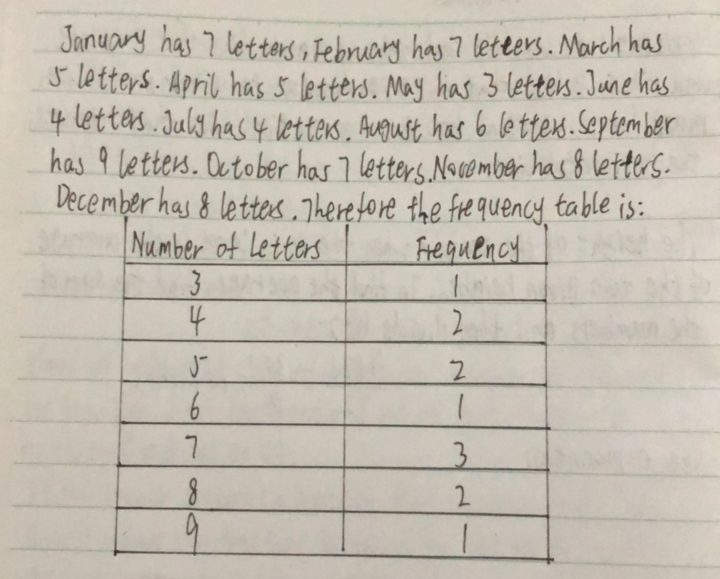 January has 7 letters, February has 7 letters. March has
5 letters. April has 5 letters. May has 3 letters. June has
4 letters. July has 4 letters. August has 6 letters. September
has 9 letters. October has 7 letters. November has 8 letters.
December has 8 letters. Therefore the frequency table is:
Number of Letters Frequency
3 1
4 2
5 2
6 1
7 3
8 2
9 1